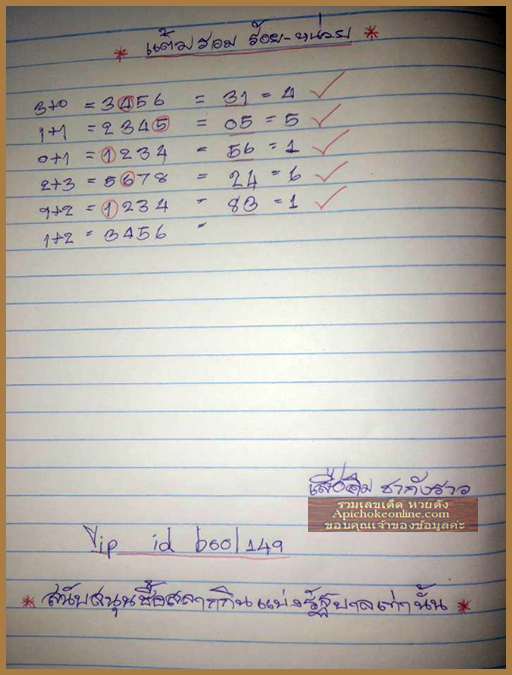 * แต้มรวม ร้อย-หน่วย *
3+0 = 3456 = 31 = 4 ✓
1+1 = 2345 = 05 = 5 ✓
0+1 = 1234 = 56 = 1 ✓
2+3 = 5678 = 24 = 6 ✓
9+2 = 1234 = 83 = 1 ✓
1+2 = 3456 =
รวมเลขเด็ด หวยดัง
Apichokeonline.com
ขอบคุณเจ้าของข้อมูลค่ะ
Vip id boo1149
* สนับสนุนซื้อสลากกินแบ่งรัฐบาลเท่านั้น *